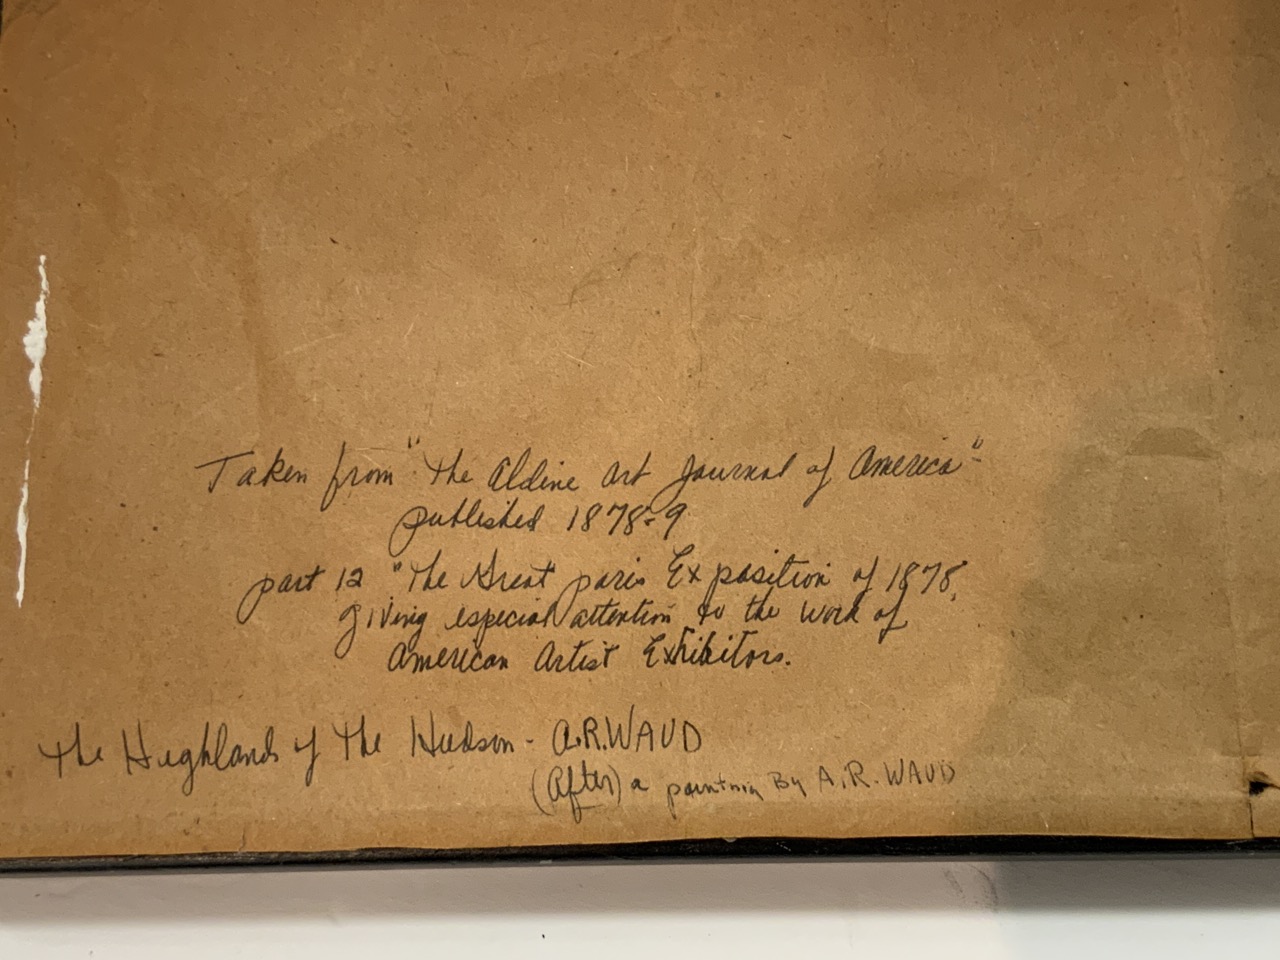 Taken from "The Aldine Art Journal of America" -
published 1878-9
part 12 "The Great paris Exposition of 1878,
giving especial attention to the work of
American Artist Exhibitors.
The Highlands of The Hudson - A.R.WAUD
(After) a painting By A.R. WAUD